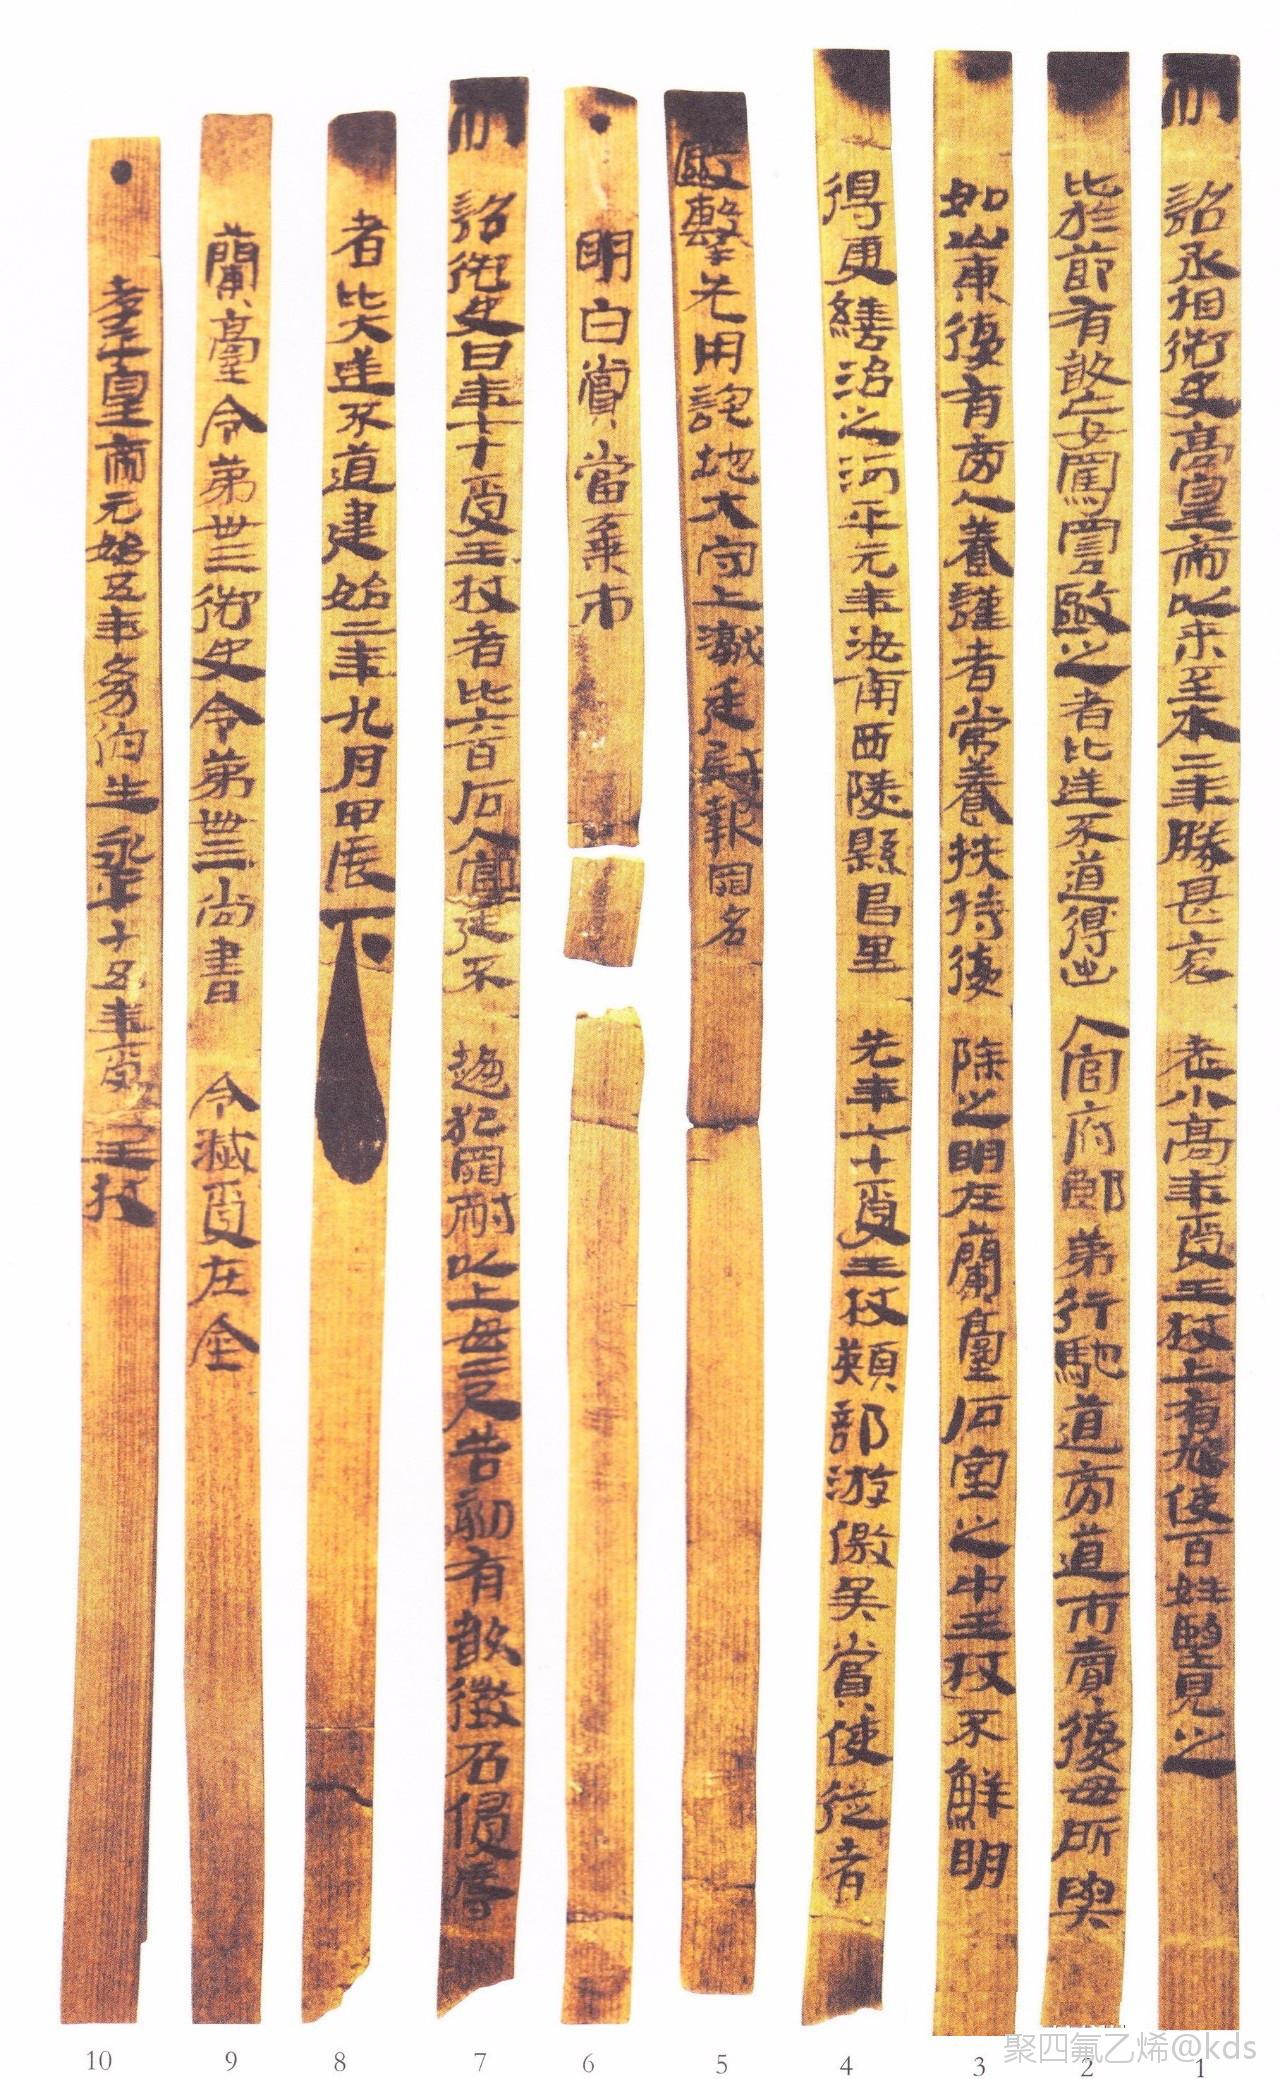 制詔丞相御史高皇帝以來至本二年勝甚哀老小高年受王杖上有鳩使百姓望見之
比於節有敢妄罵詈毆之者比逆不道得出入官府郎第行馳道旁道市賣復毋所與
如山東復有旁人養謹者常養扶持復除之明在蘭臺石室之中王杖不鮮明
得更繕治之河平元年汝南西陵縣昌里先年七十受王杖熲部游徼吳賞使從者
毆擊先用詫地大守上讞廷尉報罪名
明白賞當棄市
制詔御史曰年七十受王杖者比六百石入宮廷不趨犯罪耐以上毋二尺告劾有敢徵召侵辱
者比大逆不道建始二年九月甲辰下
蘭臺令第卅三御史令第卌三尚書令滅受在金
孝平皇帝元始五年幼伯生永平十五年受王杖
10 9 8 7 6 5 4 3 2 1
聚四氟乙烯@kds